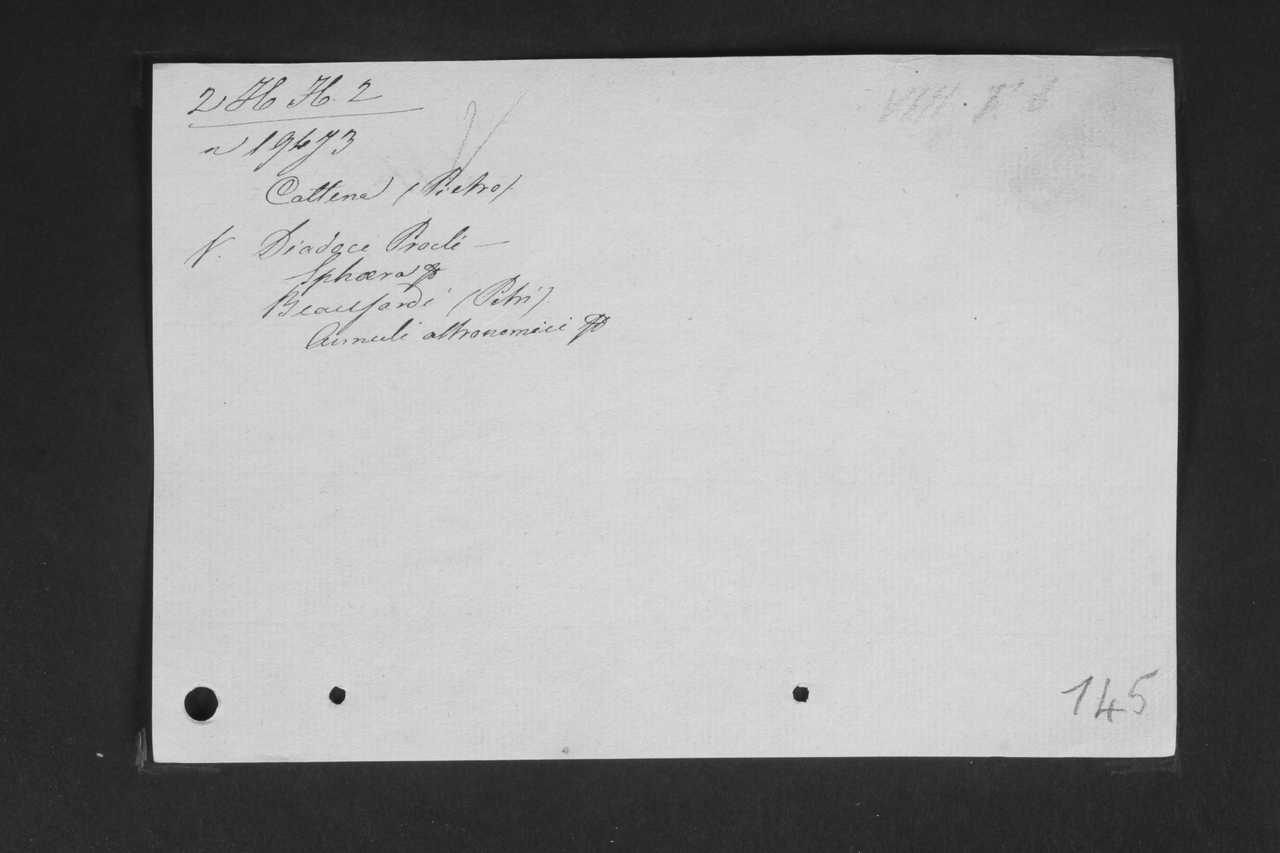 2 H H. 2
n 19473
Cattena (Pietro)
V. Diadoci Procli —
Sphæra
Beausardi (Petri)
Annuli astronomici
145